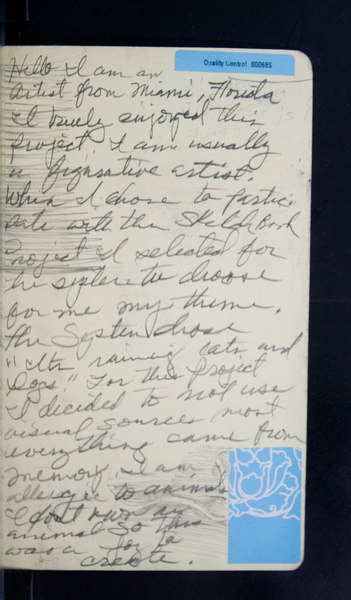 Quality Control 000685
Hello I am an
artist from Miami, Florida
I truly enjoyed this
project, I am usually
a figurative artist.
When I chose to partici
pate with the Sketch Book
Project I selected for
the system to choose
for me my theme.
The System chose
"Its raining cats and
Dogs." For this project
I decided to not use
visual sources most
everything came from
memory. I am
allergic to animals
I don't own an
animal so this
was a joy to
create.